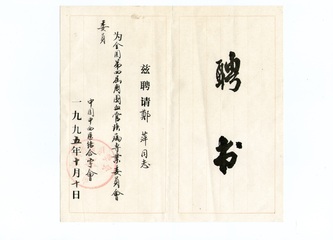 聘书
兹聘请郑萍同志
为全国第四届周围血管疾病专业委员会
委员
中国中西医结合学会
一九九五年十月十日